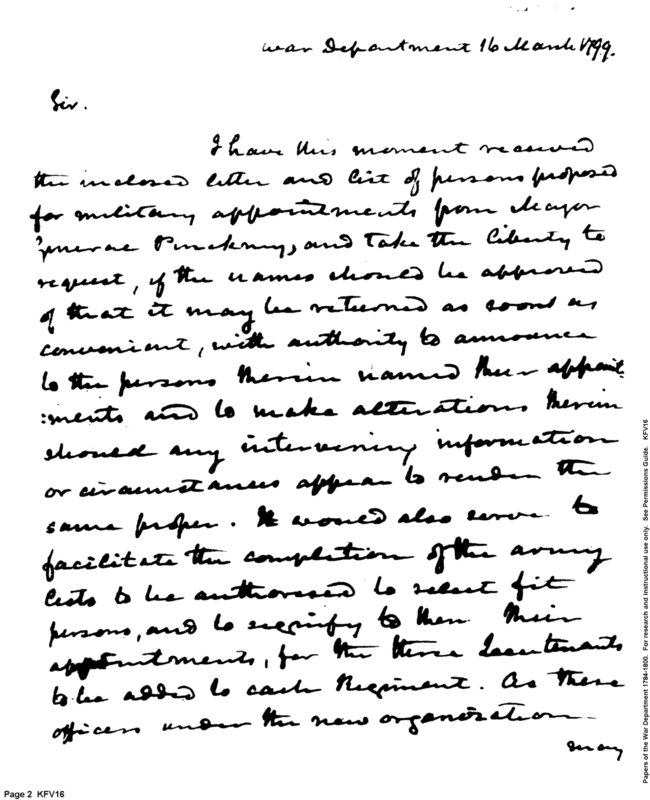 War Department 16 March 1799.
Sir.
I have this moment received
the inclosed letter and list of persons proposed
for military appointments from Major
General Pinckney, and take the liberty to
request, if the names should be approved
of that it may be returned as soon as
convenient, with authority to announce
to the persons therein named their appoint
:ments and to make alterations therein
should any intervening information
or circumstances appear to render the
same proper. It would also serve to
facilitate the completion of the army
lists to be authorised to select fit
persons, and to signify to them their
appointments, for the three Lieutenants
to be added to each Regiment. As these
officers under the new organization
may
Page 2 KFV16
Papers of the War Department 1784-1800. For research and instructional use only. See Permissions Guide. KFV16